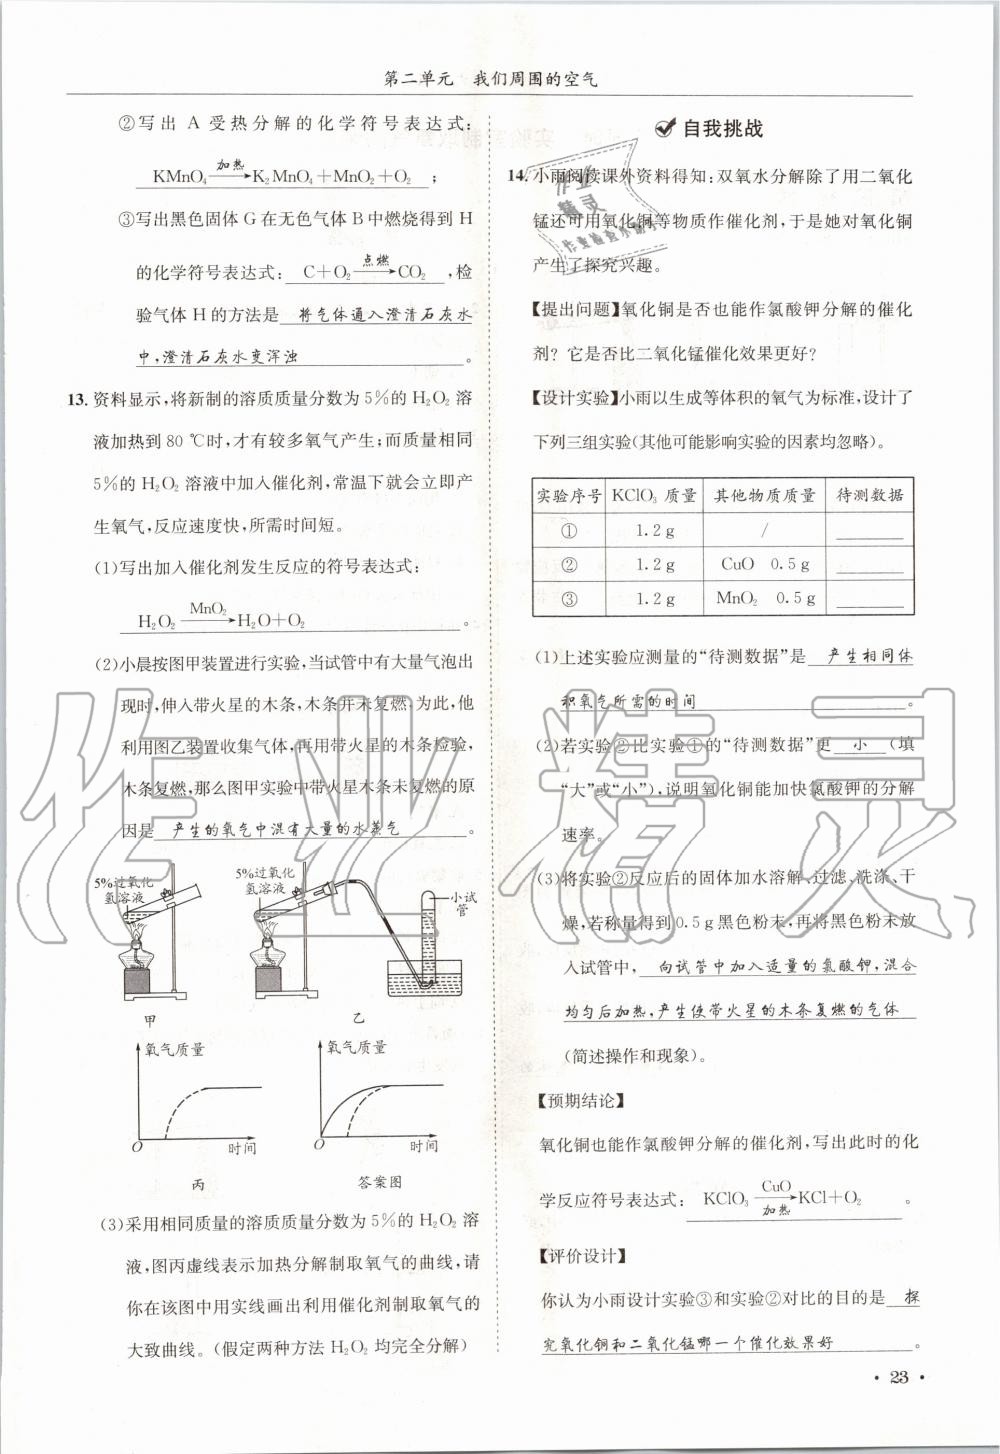 第二单元 我们周围的空气
②写出 A 受热分解的化学符号表达式:
KMnO₄ —加热→ K₂MnO₄+MnO₂+O₂ ;
③写出黑色固体 G 在无色气体 B 中燃烧得到 H
的化学符号表达式: C+O₂ —点燃→ CO₂ ,检
验气体 H 的方法是 将气体通入澄清石灰水
中,澄清石灰水变浑浊 。
13. 资料显示,将新制的溶质质量分数为 5%的 H₂O₂ 溶
液加热到 80 ℃时,才有较多氧气产生;而质量相同
5%的 H₂O₂ 溶液中加入催化剂,常温下就会立即产
生氧气,反应速度快,所需时间短。
(1)写出加入催化剂发生反应的符号表达式:
H₂O₂ —MnO₂→ H₂O+O₂ 。
(2)小晨按图甲装置进行实验,当试管中有大量气泡出
现时,伸入带火星的木条,木条并未复燃。为此,他
利用图乙装置收集气体,再用带火星的木条检验,
木条复燃,那么图甲实验中带火星木条未复燃的原
因是 产生的氧气中混有大量的水蒸气 。
5%过氧化
氢溶液
5%过氧化
氢溶液
小试
管
甲
乙
氧气质量
O
时间
丙
氧气质量
O
时间
答案图
(3)采用相同质量的溶质质量分数为 5%的 H₂O₂ 溶
液,图丙虚线表示加热分解制取氧气的曲线,请
你在该图中用实线画出利用催化剂制取氧气的
大致曲线。(假定两种方法 H₂O₂ 均完全分解)
自我挑战
14. 小雨阅读课外资料得知:双氧水分解除了用二氧化
锰还可用氧化铜等物质作催化剂,于是她对氧化铜
产生了探究兴趣。
【提出问题】氧化铜是否也能作氯酸钾分解的催化
剂?它是否比二氧化锰催化效果更好?
【设计实验】小雨以生成等体积的氧气为标准,设计了
下列三组实验(其他可能影响实验的因素均忽略)。
实验序号 KClO₃ 质量 其他物质质量 待测数据
① 1.2 g /
② 1.2 g CuO 0.5 g
③ 1.2 g MnO₂ 0.5 g
(1)上述实验应测量的“待测数据”是 产生相同体
积氧气所需的时间 。
(2)若实验②比实验①的“待测数据”更 小 (填
“大”或“小”),说明氧化铜能加快氯酸钾的分解
速率。
(3)将实验②反应后的固体加水溶解、过滤、洗涤、干
燥,若称量得到 0.5 g 黑色粉末,再将黑色粉末放
入试管中, 向试管中加入适量的氯酸钾,混合
均匀后加热,产生使带火星的木条复燃的气体
(简述操作和现象)。
【预期结论】
氧化铜也能作氯酸钾分解的催化剂,写出此时的化
学反应符号表达式: KClO₃ —CuO/加热→ KCl+O₂ 。
【评价设计】
你认为小雨设计实验③和实验②对比的目的是 探
究氧化铜和二氧化锰哪一个催化效果好 。
· 23 ·
作业精灵